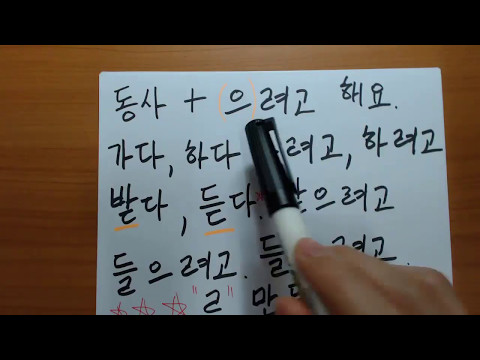 동사 + (으)려고 해요.
가다, 하다 려고, 하려고
받다, 듣다. 받으려고
들으려고. 려고.
☆☆☆ "ㄹ"